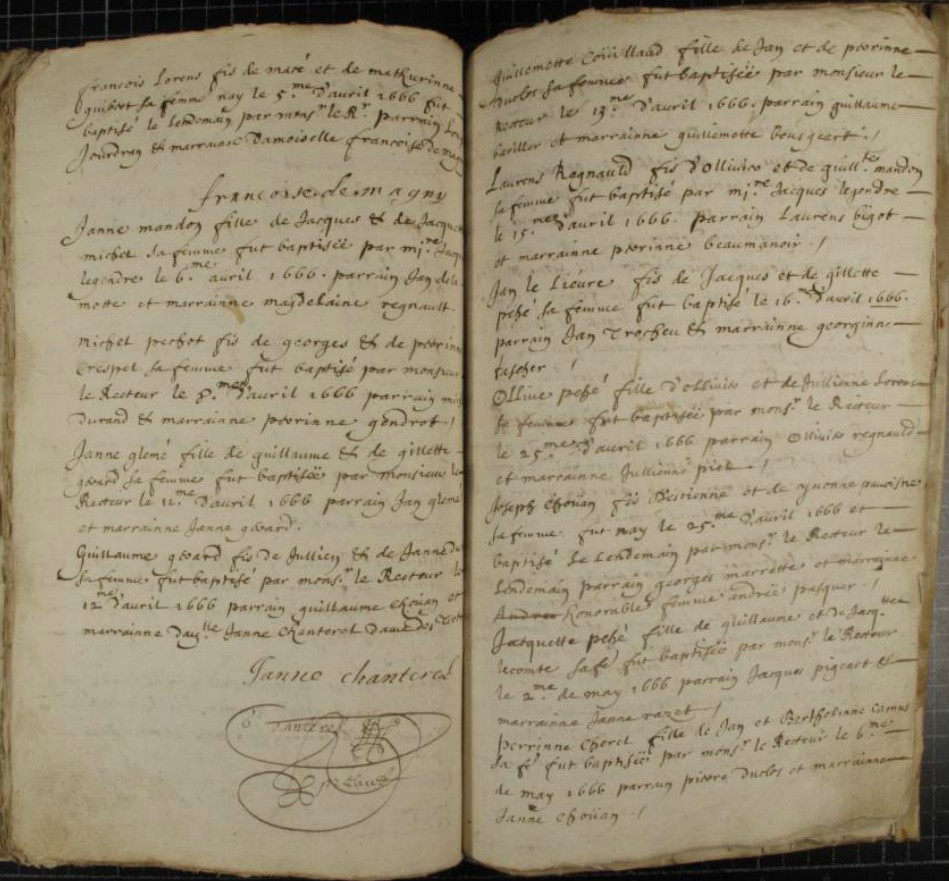 francois Lorens fis de macé et de mathurinne
guibert sa femme nay le 5.me d'auril 1666 fut
baptisé le Lendemain par mons.r le R.r parrain
Jourdran & marrainne Damoiselle francoise de
francoise de magny
Janne mandon fille de Jacques & de
michel sa femme fut baptiseë par mi.re
legendre le 6.me auril 1666. parrain Jan de la
motte et marrainne magdelaine regnault.
michel pechot fis de georges & de
Crespel sa femme fut baptisé par monsieur
le Recteur le 8.me d'auril 1666 parrain
Durand & marrainne perrinne gendrot /
Janne glemé fille de guillaume & de gillette
guard sa femme fut baptiseë par monsieur le
Recteur le 11.me d'auril 1666 parrain Jan glemé
et marrainne Janne guard.
Guillaume guard fis de Jullien & de Janne
sa femme fut baptisé par mons.r le Recteur le
12.me d'auril 1666 parrain guillaume Choüan et
marrainne Janne Chanterel Dame des
Janne chanterel
guillemette Coüillaud fille de Jan et de perrinne
Duclos sa femme fut baptiseë par monsieur le
Recteur le 13.me d'auril 1666. parrain guillaume
bariller et marrainne guillemette bousgeart. /
Laurens Regnauld fis d'Olliuier et de guill.tte mandon
sa femme fut baptisé par mi.re Jacques legendre
le 15.me d'auril 1666. parrain Laurens bigot
et marrainne perrinne beaumanoir. /
Jan le Lieure fis de Jacques et de gillette
pehé sa femme fut baptisé le 16.me d'auril 1666.
parrain Jan Crocheu & marrainne georginne
/
Olliue pehé fille d'olliuier et de Jullienne Lorens
sa femme fut baptiseë par mons.r le Recteur
le 25.me d'auril 1666 parrain Olliuier regnauld
et marrainne Jullienne piel /
Joseph Choüan fis d'estienne et de
sa femme. fut nay le 25.me d'auril 1666 et
baptisé Le Lendemain par mons.r le Recteur le
Lendemain parrain georges marrette et marrainne
Andreë honorable femme andreë pasquer. /
Jacquette pehé fille de guillaume et de Jacq.tte
lecomte sa fe. fut baptiseë par mons.r le Recteur
le 2.me de may 1666 parrain Jacques pigeart &
marrainne Janne razet /
perrinne Cherel fille de Jan et Berthelinne Camus
sa fe. fut baptiseë par mons.r le Recteur le 6.me
de may 1666 parrain pierre Duclos et marrainne
Janne Choüan. /